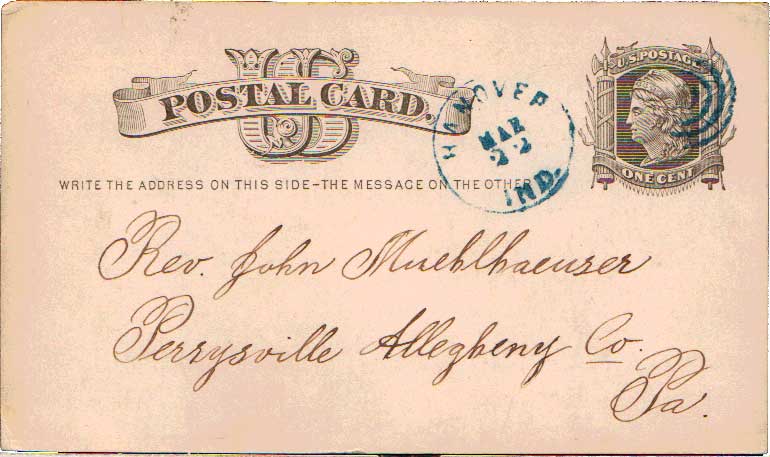 US
POSTAL CARD.
WRITE THE ADDRESS ON THIS SIDE-THE MESSAGE ON THE OTHER
HANOVER
MAR
22
IND.
U.S. POSTAGE
ONE CENT
Rev. John Muehlhaeuser
Perrysville Allegheny Co.
Pa.